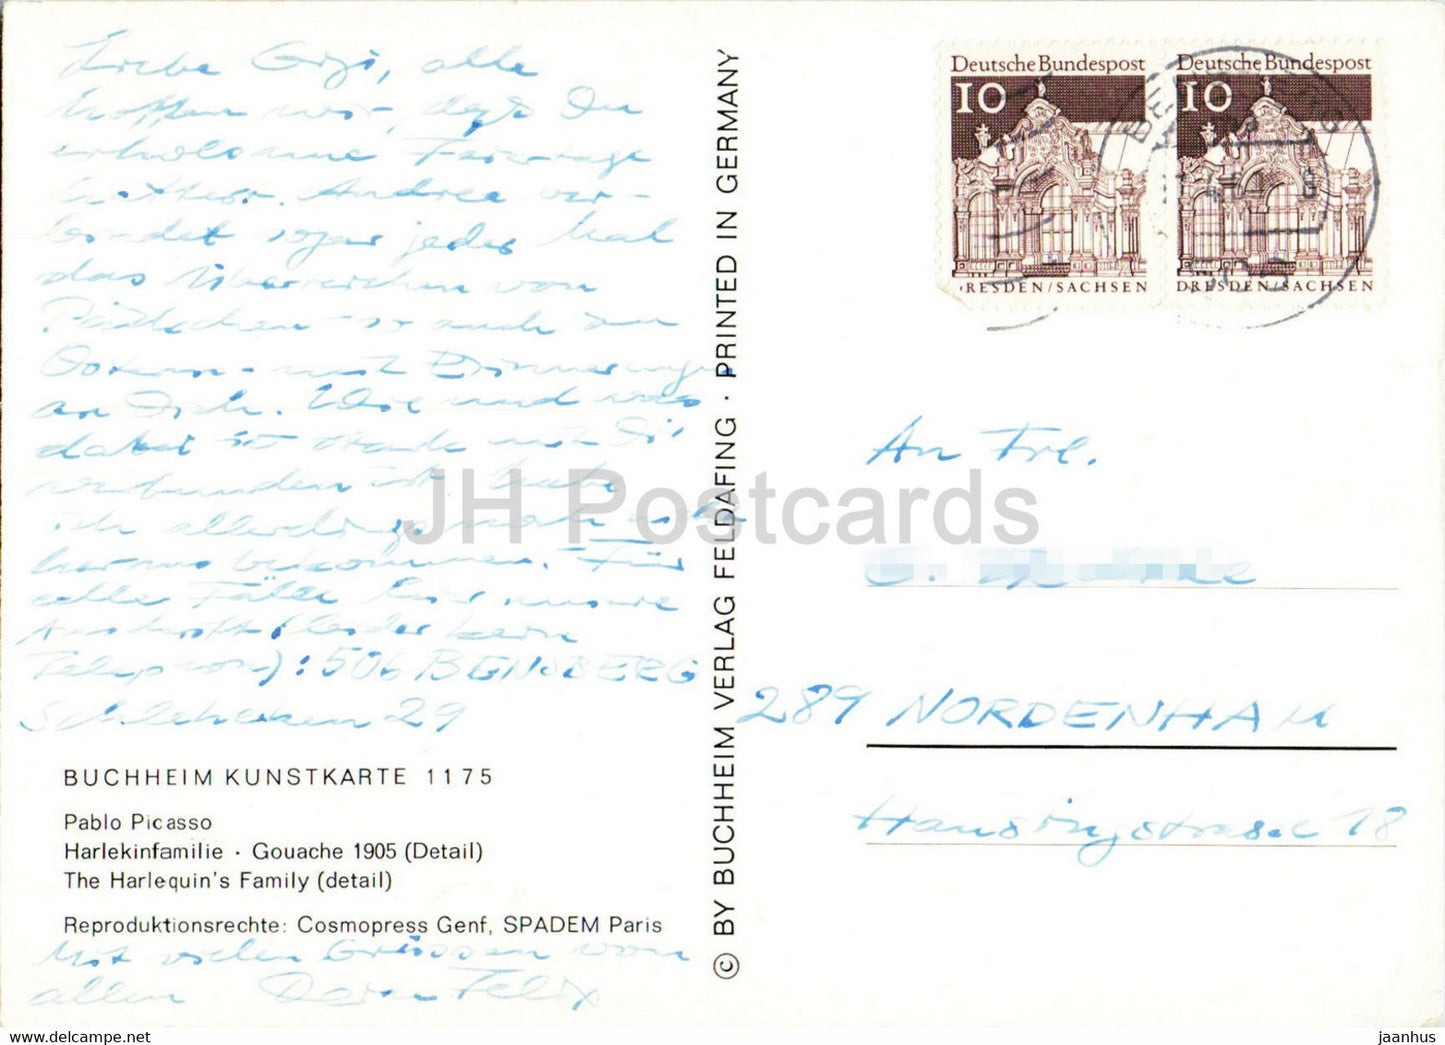 Liebe Gigi, alle
hoffen wir, daß Du
erholsame Feiertage
hattest. Andrea ver-
bindet sogar jedes Mal
das Überreichen von
Plätzchen - so auch zu
Ostern - mit Erinnerungen
an Dich. Wie und was
dabei so stark mit Dir
verbunden ist habe
ich allerdings noch nicht
heraus bekommen. Für
alle Fälle hier unsere
Anschrift (leider kein
Telephon): 506 BENSBERG
Schlehecken 29
BUCHHEIM KUNSTKARTE 1175
Pablo Picasso
Harlekinfamilie · Gouache 1905 (Detail)
The Harlequin's Family (detail)
Reproduktionsrechte: Cosmopress Genf, SPADEM Paris
Mit vielen Grüssen von
allen Dein Felix
© BY BUCHHEIM VERLAG FELDAFING · PRINTED IN GERMANY
Deutsche Bundespost
10
RESDEN/SACHSEN
Deutsche Bundespost
10
DRESDEN/SACHSEN
An Frl.
289 NORDENHAM
Hansingstrasse 18
JH Postcards
www.delcampe.net
jaanhus